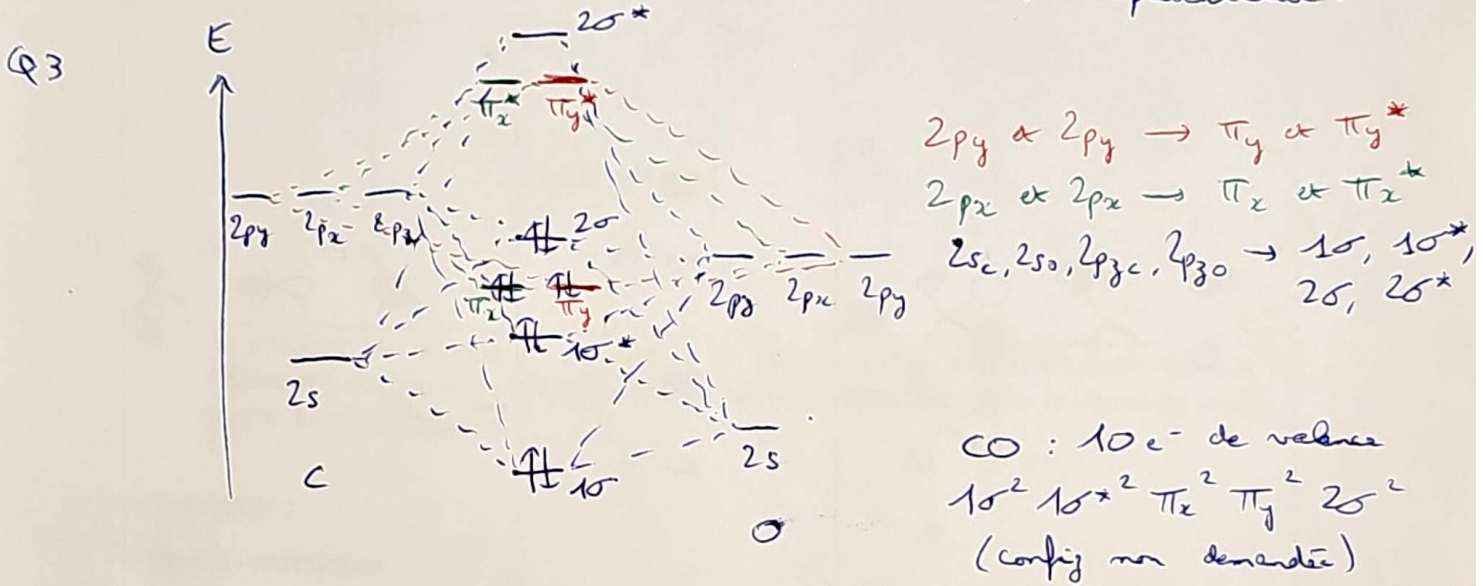 Q3
E
2σ*
πx* πy*
2py 2px 2pz
2σ
πx πy
2pz 2px 2py
1σ*
2s
1σ
2s
C
O
2py et 2py → πy et πy*
2px et 2px → πx et πx*
2sC, 2sO, 2pzC, 2pzO → 1σ, 1σ*,
2σ, 2σ*
CO : 10 e⁻ de valence
1σ² 1σ*² πx² πy² 2σ²
(config non demandée)